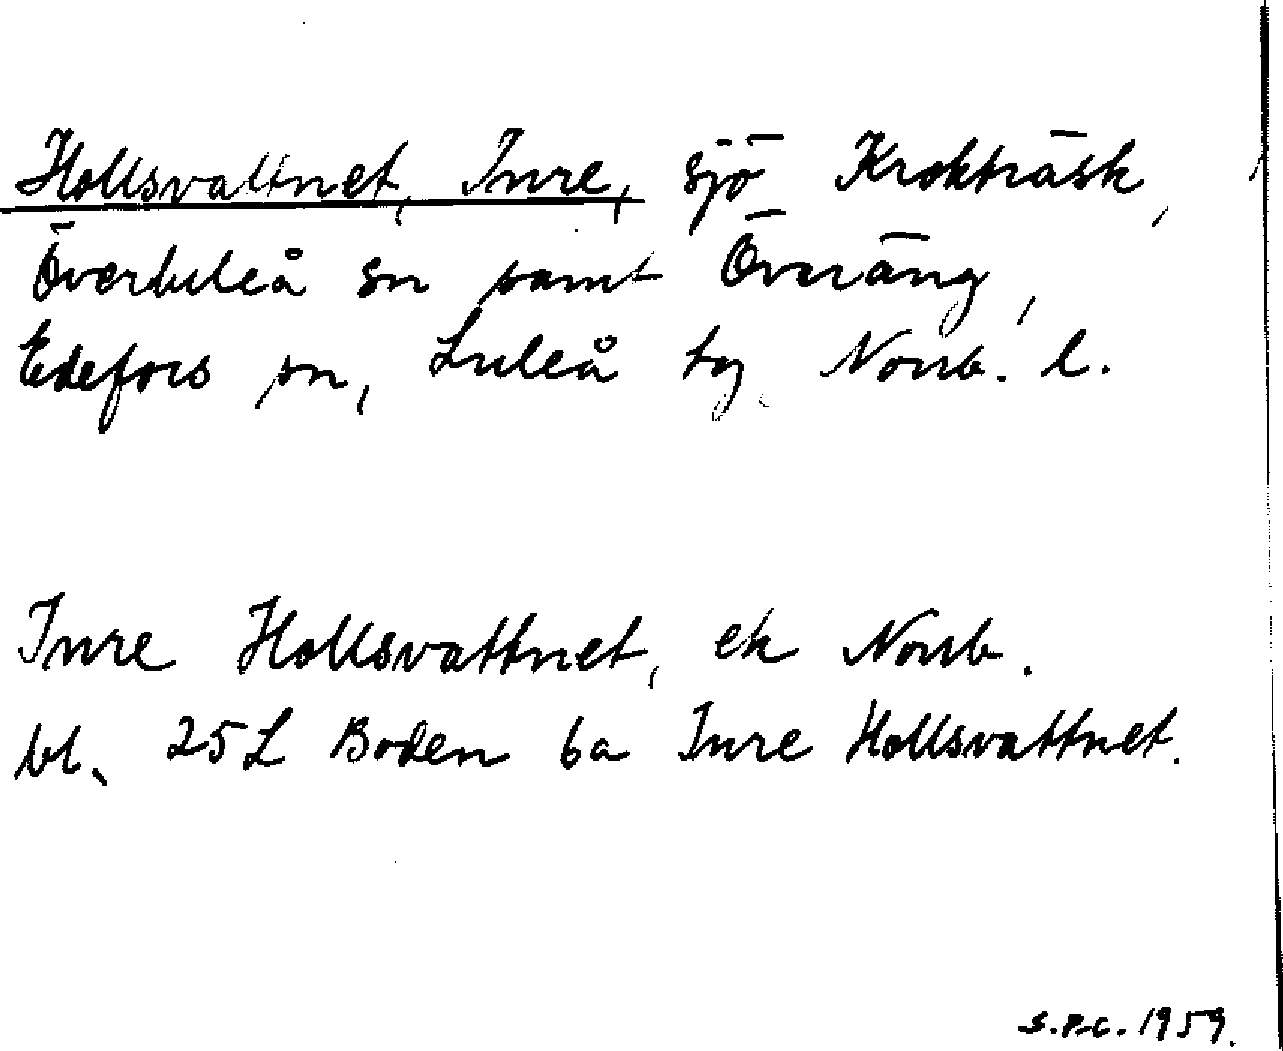 Hollsvattnet, Inre, sjö Krokträsk,
Överluleå sn samt Överäng,
Edefors sn, Luleå tg, Norrb. l.
Inre Hollsvattnet, ek Norrb.
bl. 25L Boden 6a Inre Hollsvattnet.
S.P.C. 1959.